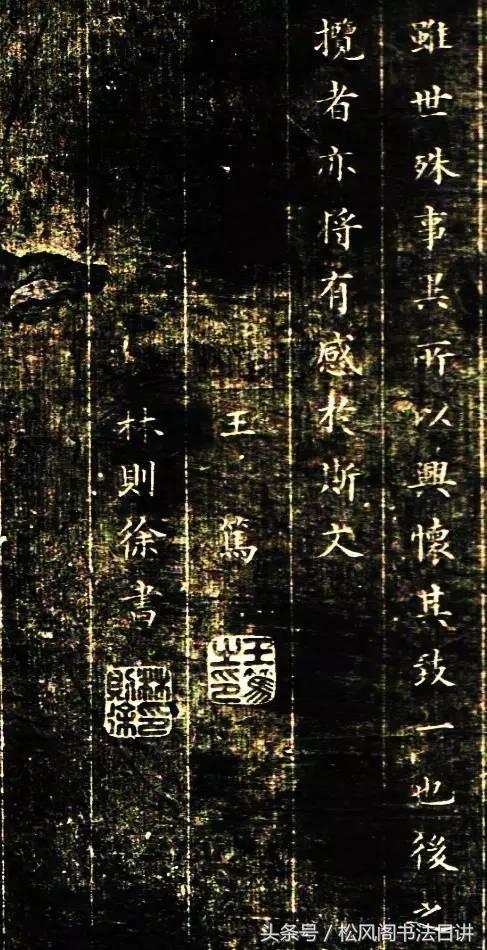 雖世殊事異所以興懷其致一也後之
攬者亦將有感於斯文
王篤
王篤之印
林則徐書
林印則徐
头条号 / 松风阁书法日讲